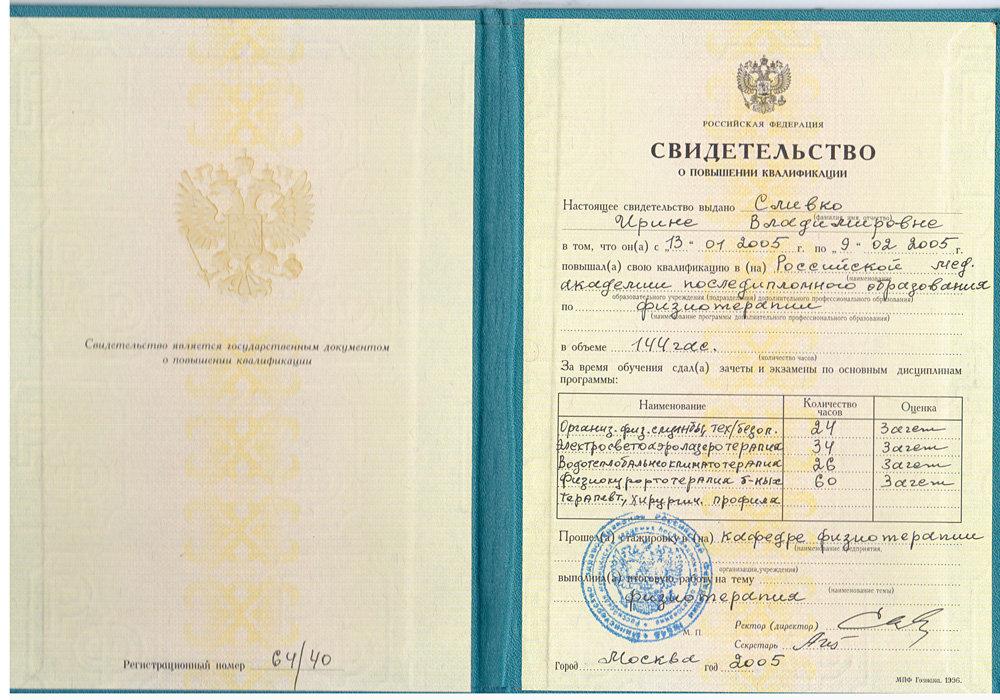 Свидетельство является государственным документом
о повышении квалификации
Регистрационный номер 64/40
РОССИЙСКАЯ ФЕДЕРАЦИЯ
СВИДЕТЕЛЬСТВО
О ПОВЫШЕНИИ КВАЛИФИКАЦИИ
Настоящее свидетельство выдано Сливко
(фамилия, имя, отчество)
Ирине Владимировне
в том, что он(а) с „13“ 01 2005 г. по „9“ 02 2005 г.
повышал(а) свою квалификацию в (на) Российской мед.
(наименование
академии последипломного образования
образовательного учреждения (подразделения) дополнительного профессионального образования)
по физиотерапии
(наименование программы дополнительного профессионального образования)
в объеме 144 час.
(количество часов)
За время обучения сдал(а) зачеты и экзамены по основным дисциплинам
программы:
Наименование Количество часов Оценка
Организ. физ. службы, тех/безоп. 24 Зачет
Электросветоаэролазеротерапия 34 Зачет
Водотеплобальнеоклиматотерапия 26 Зачет
Физиокурортотерапия б-ных 60 Зачет
терапевт., хирургич. профиля
Прошел(а) стажировку в (на) Кафедре физиотерапии
(наименование предприятия,
организации, учреждения)
выполнил(а) итоговую работу на тему
(наименование темы)
физиотерапия
Ректор (директор)
М. П.
Секретарь
Город Москва год 2005
МПФ Гознака. 1996.